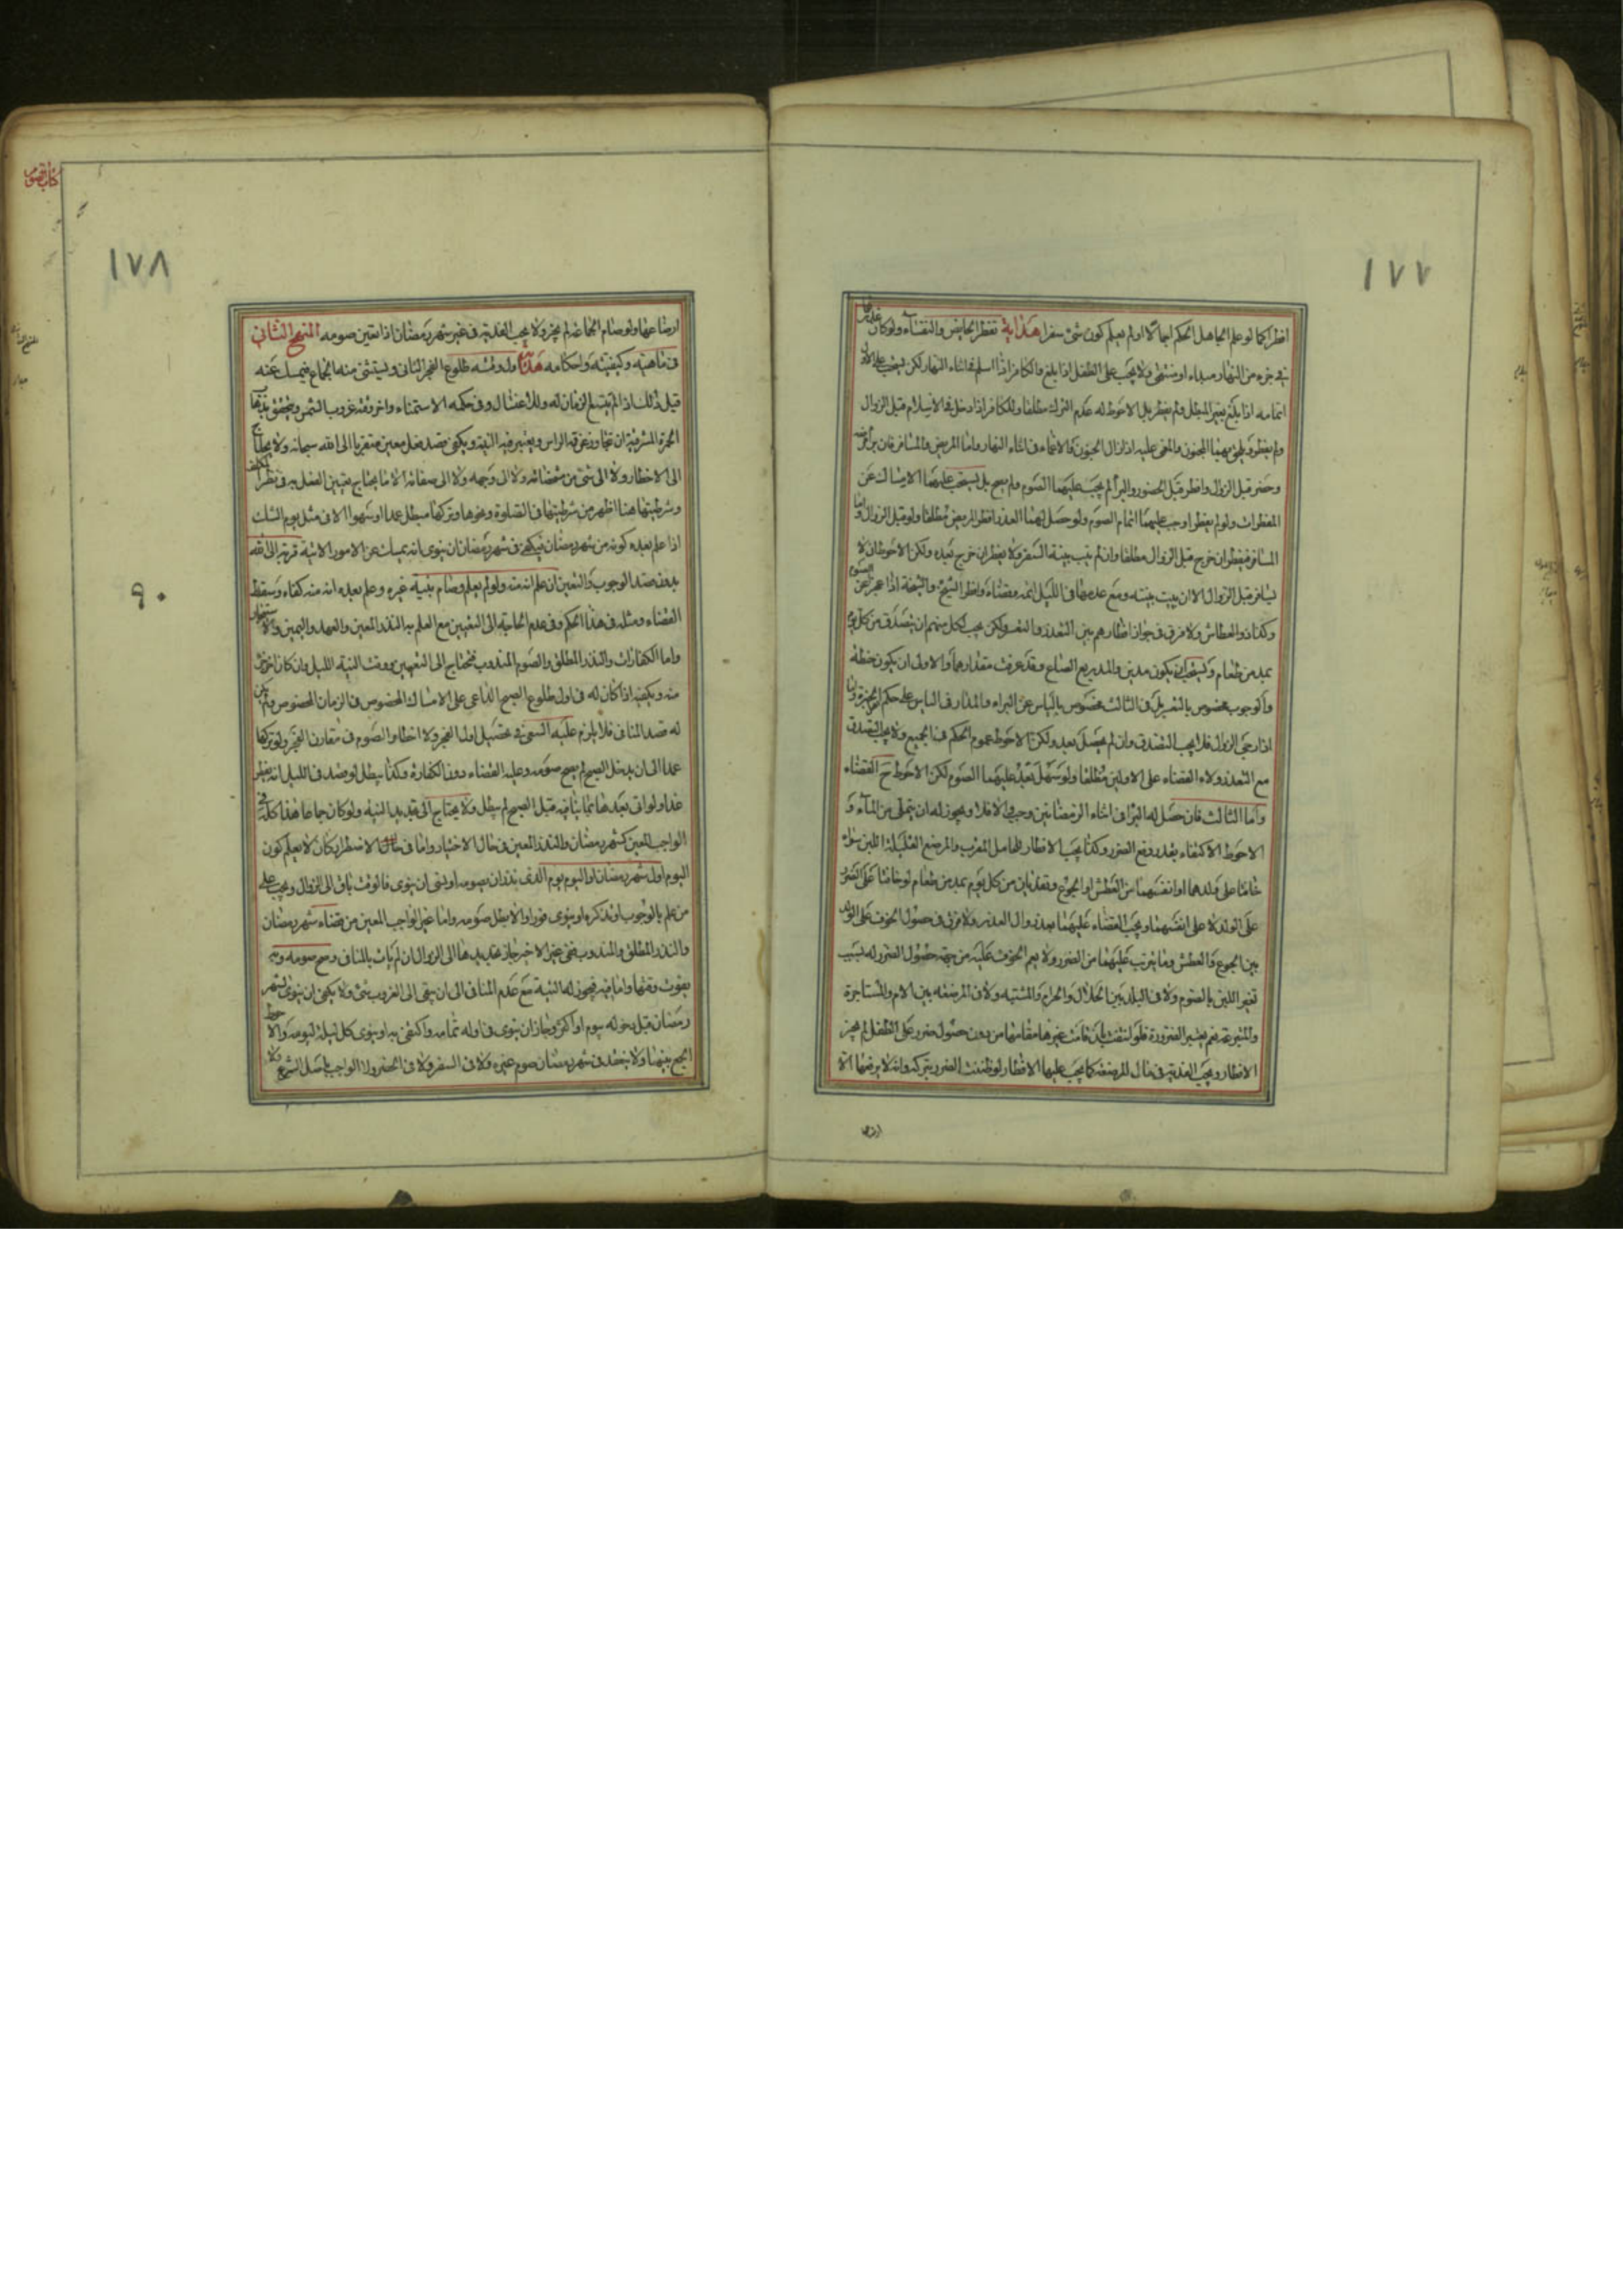 ١٧٧
افطر كما لو علم الجاهل الحكم ايضا او لم يعلم كون شئ سفرا هداية تفطر الحايض والنفساء ولو كان عذرهما
في جزء من النهار مبداء او منتهى ولا يجب على الطفل اذا بلغ والكافر اذا اسلم في اثناء النهار لكن يستحب على الاول
اتمامه اذا بلغ بغير المبطل ولم يفطر بل الاحوط له عدم الترك مطلقا وللكافر اذا دخل في الاسلام قبل الزوال
ولم يفطر ويلحق بهما المجنون والمغمى عليه اذا زال الجنون والاغماء في اثناء النهار واما المريض والمسافر فان برأ
وحضر قبل الزوال وافطر قبل الحضور والبرأ لم يجب عليهما الصوم ولم يصح بل يستحب عليهما الامساك عن
المفطرات ولو لم يفطرا وجب عليهما اتمام الصوم ولو حصل لهما العذر افطر المريض مطلقا ولو قبل الزوال واما
المسافر فيفطر ان خرج قبل الزوال مطلقا وان لم يبت بنية السفر ولا يفطر ان خرج بعده ولكن الاحوط ان لا
يسافر قبل الزوال الا ان يبيت بنيته ومع عدمها في الليل اتمه وقضاه وافطر الشيخ والشيخة اذا عجزا عن الصوم
وكذا ذو العطاش ولا فرق في جواز افطارهم بين التعذر والتعسر ولكن يجب لكل منهم ان يتصدق من كل يوم
بمد من طعام ويستحب ان يكون مدين والمد ربع الصاع وقد عرفت مقدارهما والاولى ان يكون حنطة
والوجوب مخصوص بالتعسر بل في الثالث مخصوص بالياس عن البراء والمدار في الياس على حكم الخبرة واما
اذا رجى الزوال فلا يجب التصدق وان لم يحصل بعد ولكن الاحوط عموم الحكم في الجميع ولا يجب التصدق
مع التعذر ولا القضاء على الاولين مطلقا ولو سهل بعد عليهما الصوم لكن الاحوط ح القضاء
واما الثالث فان حصل له البرأ في اثناء الرمضانين وجب والا فلا ويجوز له ان يتملى من الماء و
الاحوط الاكتفاء بقدر دفع الضرر وكذا يجب الافطار للحامل المقرب والمرضع القليلة اللبن سواء
خافتا على ولدهما او انفسهما من العطش او الجوع وتفديان من كل يوم بمد من طعام لو خافتا على الضرر
على الولد لا على انفسهما ويجب القضاء عليهما بعد زوال العذر ولا فرق في حصول الخوف على الولد
بين الجوع والعطش وما يترتب عليهما من الضرر ولا يعم الخوف عليه من جهة حصول الضرر له بسبب
تغير اللبن بالصوم ولا في البلد بين الحلال والحرام والمشتبه ولا في المرضعة بين الام والمستاجرة
والمتبرعة نعم يعتبر الضرورة فلو انتفت بان قامت غيرها مقامها من دون حصول ضرر على الطفل لم يجز
الافطار ويجب الفدية في مال المرضعة كما يجب عليها الافطار لو ظننت الضرر بتركه وانه لا يرفعها الا
ارضا
كتاب الصوم
١٧٨
ارضاعها ولو صام الجماعة لم يجز ولا يجب الفدية في غير شهر رمضان اذا تعين صومه المنهج الثاني
في ماهيته وكيفيته واحكامه هداية اول وقته طلوع الفجر الثاني ويستثنى منه الجماع فيمسك عنه
قيل ذلك اذا لم يتسع الزمان له وللاغتسال وفي حكمه الاستمناء واخر وقته غروب الشمس ويتحقق بذهاب
الحمرة المشرقية ان تجاوزت عن قمة الراس ويعتبر فيه النية ويكفى قصد فعل معين متقربا الى الله سبحانه ولا يحتاج
الى الاخطار ولا الى شئ من مشخصاته ولا الى وجهه ولا الى صفاته الا ما يحتاج تعيين الفعل به في نظر المكلف
وشرطيتها هنا اظهر من شرطيتها في الصلوة ونحوها وتركها مبطل عمدا او سهوا الا في مثل يوم الشك
اذا علم بعده كونه من شهر رمضان فيكفى في شهر رمضان ان ينوى انه يمسك عن الامور الاتية قربة الى الله
بدون قصد الوجوب والتعيين ان علم انه منه ولو لم يعلم وصام بنية غيره وعلم بعده انه منه كفاه وسقط
القضاء ومثله في هذا الحكم وفي عدم الحاجة الى التعيين مع العلم به النذر المعين والعهد واليمين والاستيجار
واما الكفارات والنذر المطلق والصوم المندوب فتحتاج الى التعيين ووقت النية الليل وان كان اخر جزء
منه ويكفيه اذا كان له في اول طلوع الصبح الداعي على الامساك المخصوص في الزمان المخصوص ولم يكن
له قصد المنافي فلا يلزم عليه السعي في تحصيل اول الفجر ولا اخطار الصوم في مقارن الفجر ولو تركها
عمدا الى ان يدخل الصبح لم يصح صومه وعليه القضاء دون الكفارة وكذا يبطل لو قصد في الليل انه يفطر
غدا ولو اتى بعدها بما ينافيه قبل الصبح لم يبطل ولا يحتاج الى تجديد النية ولو كان جماعا هذا كله في
الواجب المعين كشهر رمضان والنذر المعين في حال الاختيار واما في حال الاضطرار كان لا يعلم كون
اليوم اول شهر رمضان او اليوم يوم الذي نذر ان يصومه او نسى ان ينوى فالوقت باق الى الزوال ويجب على
من علم بالوجوب او تذكره ان ينوى فورا والا بطل صومه واما غير الواجب المعين من قضاء شهر رمضان
والنذر المطلق والمندوب ففي غير الاخير جاز تجديدها الى الزوال ان لم يات بالمنافي وصح صومه وبه
يفوت وقتها واما فيه فيجوز له النية مع عدم المنافي الى ان يبقى الى الغروب شئ ولا يكفى ان ينوى لشهر
رمضان قبل دخوله بيوم او اكثر وجاز ان ينوى في اوله تمامه واكتفى به او ينوى كل ليلة ليومه والاحوط
الجمع بينهما ولا ينعقد في شهر رمضان صوم غيره ولا في السفر ولا في الحضر ولا الواجب باصل الشرع ولا
٩٠